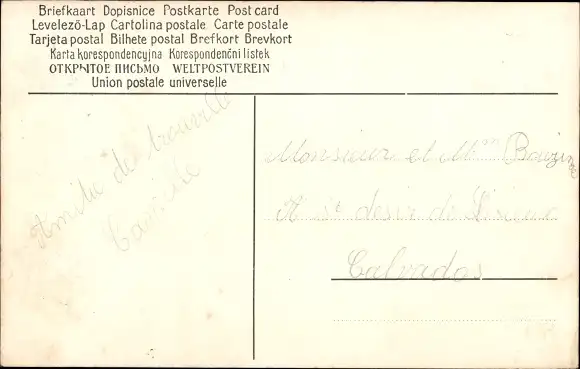 Briefkaart Dopisnice Postkarte Post card
Levelező-Lap Cartolina postale Carte postale
Tarjeta postal Bilhete postal Brefkort Brevkort
Karta korespondencyjna Korespondenční listek
ОТКРЫТОЕ ПИСЬМО WELTPOSTVEREIN
Union postale universelle
Amitié de trouville
Camille
Monsieur et Mme
A st desir de
Calvados